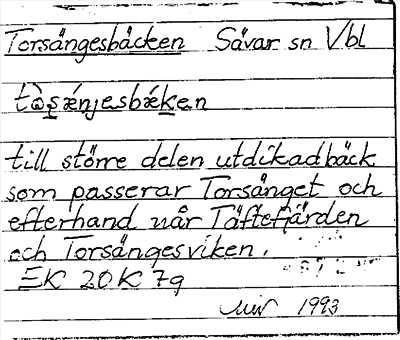 Torsängesbäcken Sävar sn Vbl
tòṣǽnjesbǽken
till större delen utdikad bäck
som passerar Torsänget och
efterhand når Täftefjärden
och Torsängesviken.
EK 20K 7g
1993